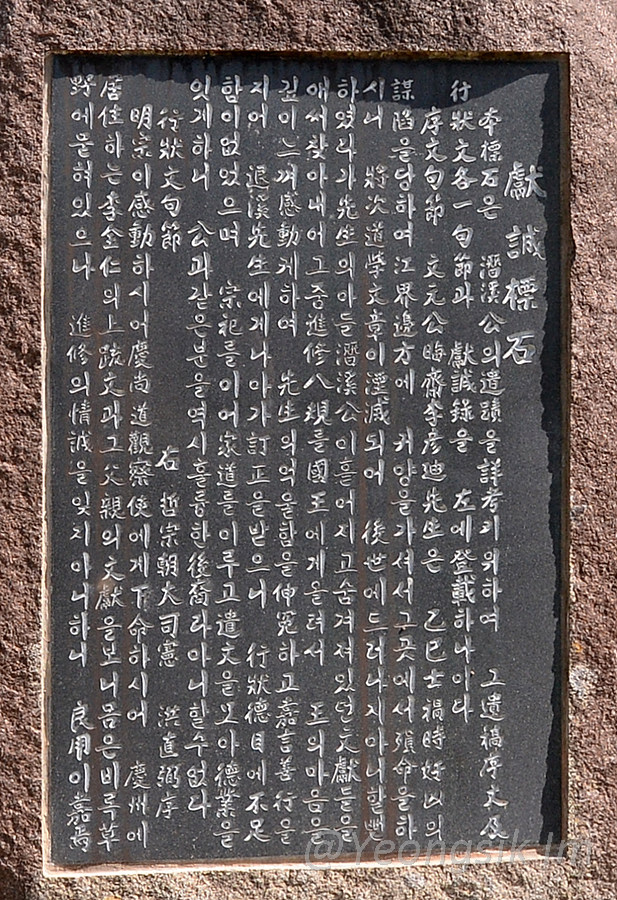 獻誠標石
本標石은 潛溪公의遺蹟을詳考키위하여 그遺稿序文及
行狀文各一句節과 獻誠錄을 左에登載하나이다
序文句節 文元公晦齋李彦迪先生은 乙巳士禍時奸凶의
謀陷을당하여江界邊方에 귀양을가셔서그곳에서殞命을하
시니 將次道學文章이湮滅되어 後世에드러나지아니할뻔
하였더라先生의아들潛溪公이흩어지고숨겨져있던文獻들을
애써찾아내어그중進修八規를國王에게올려서 王의마음을
깊이느껴感動케하여 先生의억울함을伸冤하고嘉言善行을
지어 退溪先生에게나아가訂正을받으니 行狀德目에不足
함이없었으며 宗祀를이어家道를이루고遺文을모아德業을
잇게하니 公과같은분을역시훌륭한後裔라아니할수없다
右 哲宗朝大司憲 洪直弼序
行狀文句節
明宗이感動하시어慶尙道觀察使에게下命하시어 慶州에
居住하는李全仁의上疏文과그父親의文獻을보니몸은비록草
野에묻혀있으나 進修의情誠을잊지아니하니 良用이嘉焉
@Yeongsik Im